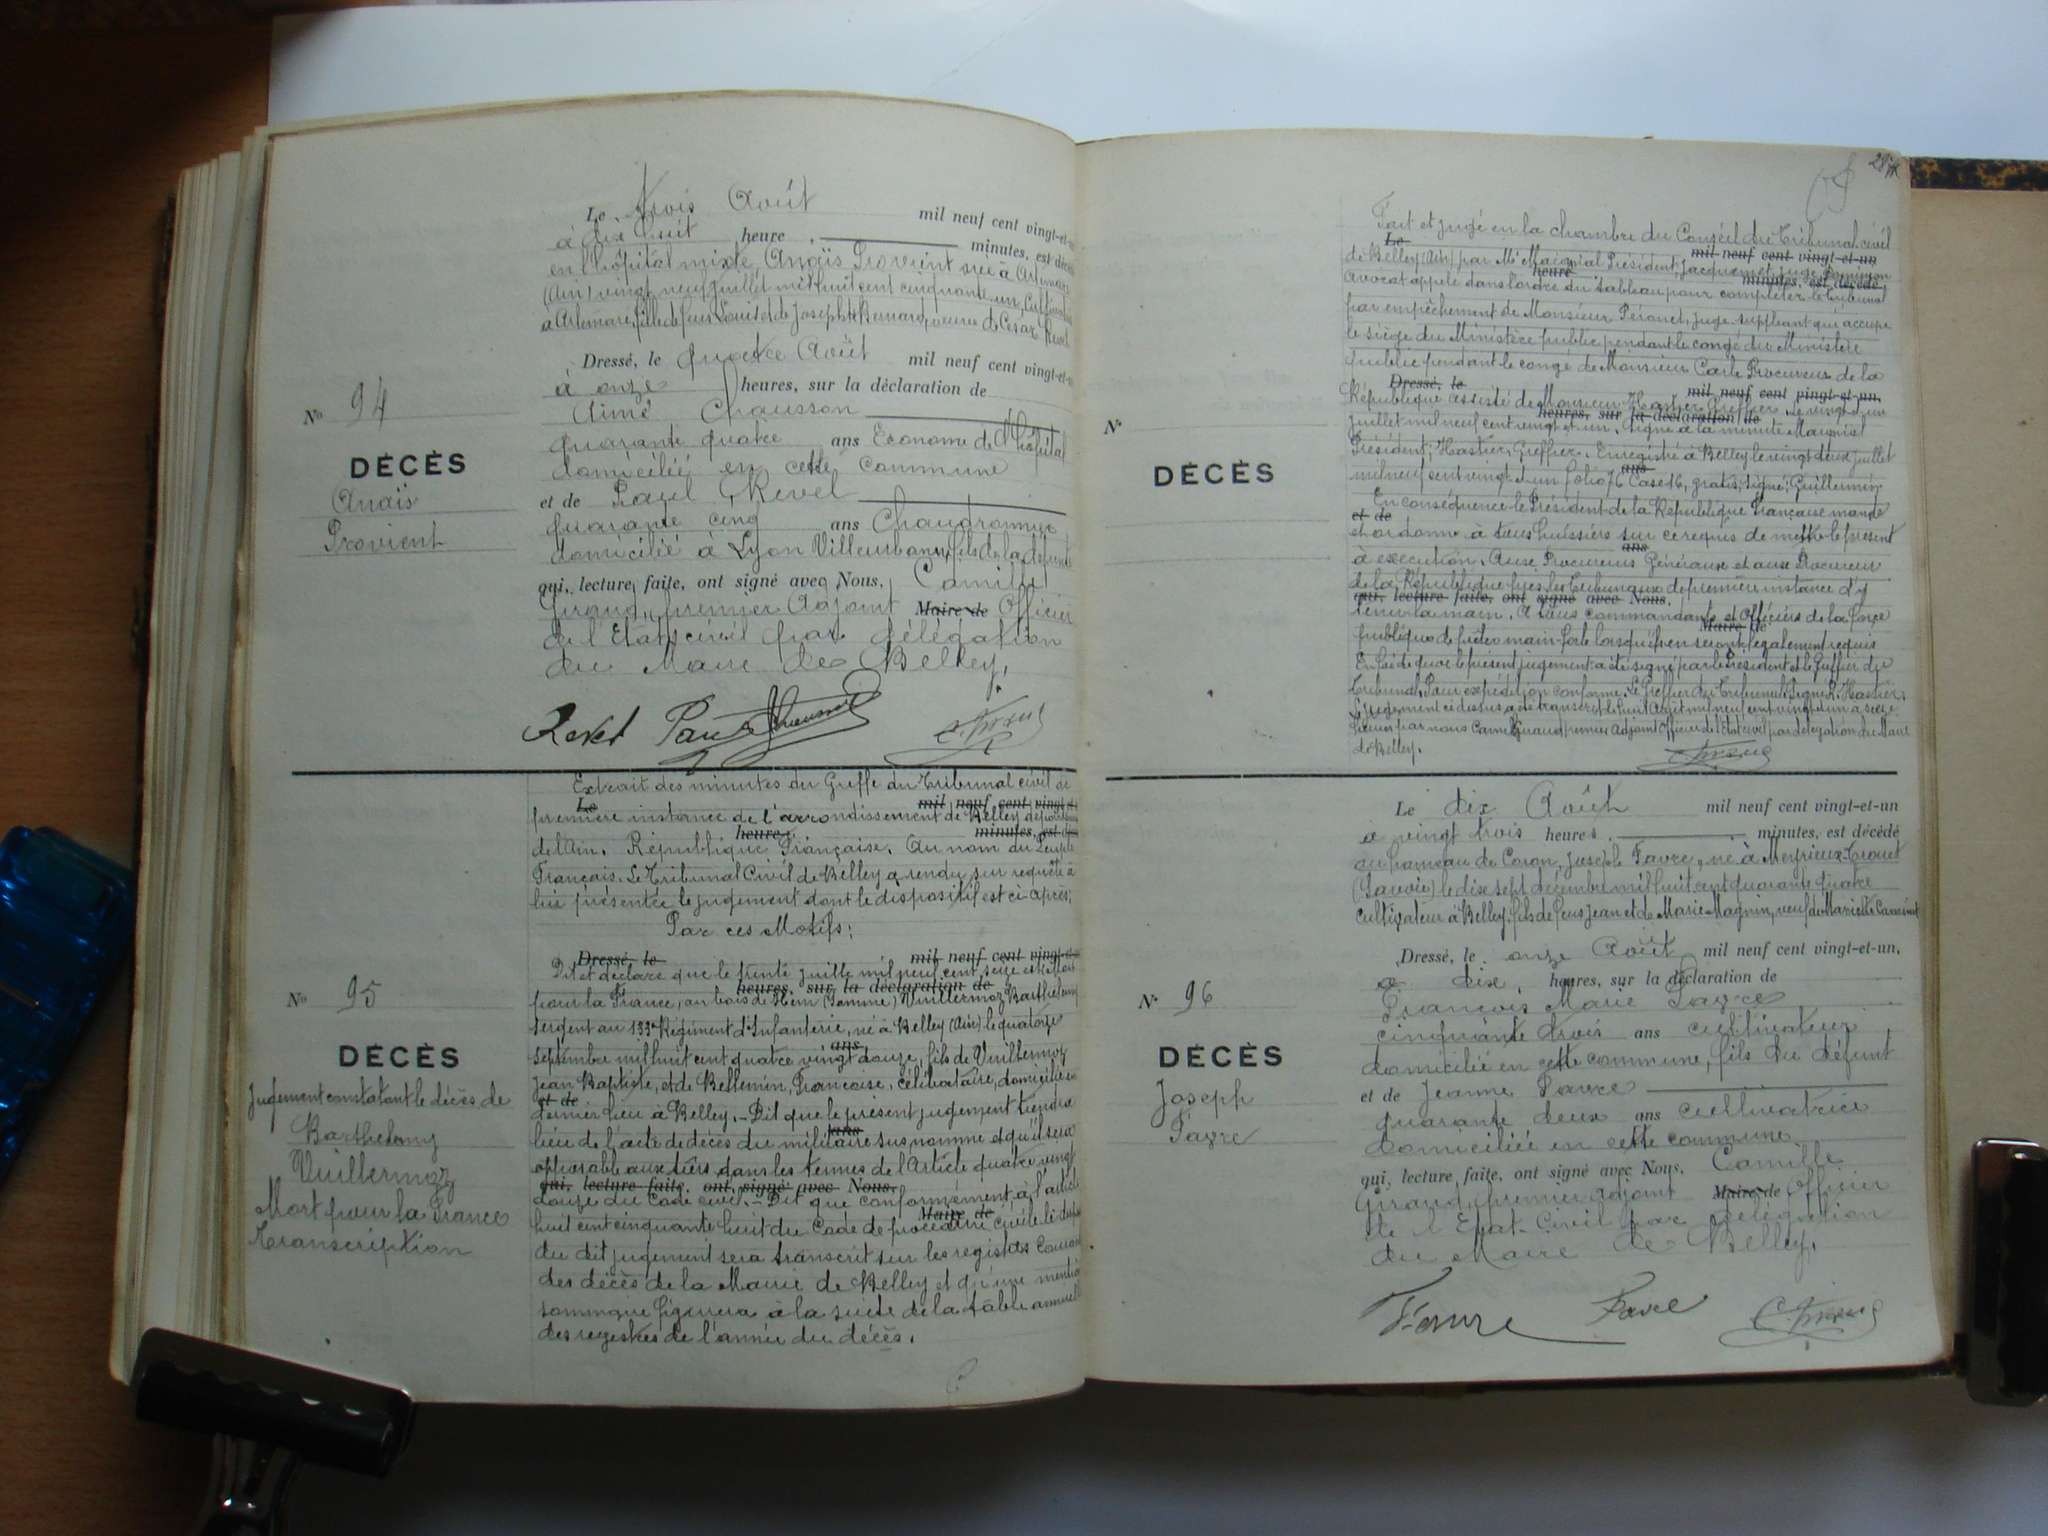 Le trois Août mil neuf cent vingt-et-
à dix huit heure , minutes, est décé
en l'hôpital mixte, Anaïs Provient née à Artemare
(Ain) vingt neuf juillet mil huit cent cinquante un,
à Artemare, fille de feus Louis et de Josephte Bernard, veuve de Cesar Revel
Dressé, le quatre Août mil neuf cent vingt-et-
à onze heures, sur la déclaration de
Aimé Chausson
N° 94
quarante quatre ans Econome de l'hôpital
DÉCÈS
domicilié en cette commune
Anaïs
et de Paul Revel
Provient
quarante cinq ans Chaudronnier
domicilié à Lyon Villeurbanne, fils de la défunte
qui, lecture faite, ont signé avec Nous, Camille
Giraud, premier Adjoint Maire de Officier
de l'Etat civil par délégation
du Maire de Belley.
Revel Paul Chausson C. Giraud
Extrait des minutes du Greffe du Tribunal civil de
Le mil neuf cent vingt-et-
première instance de l'arrondissement de Belley département
heures minutes, est
de l'Ain. République Française. Au nom du Peuple
Français. Le Tribunal Civil de Belley a rendu sur requête à
lui présentée le jugement dont le dispositif est ci-après:
Par ces Motifs:
Dressé, le mil neuf cent vingt-et-
Dit et déclare que le trente juillet mil neuf cent seize est Mort
heures, sur la déclaration de
N° 95
pour la France, au bois de Hem (Somme) Vuillermoz Barthelemy
sergent au 133e Régiment d'Infanterie, né à Belley (Ain) le quatorze
DÉCÈS
ans
septembre mil huit cent quatre vingt douze, fils de Vuillermoz
Jugement constatant le décès de
Jean Baptiste, et de Bellemin, Françoise, célibataire, domicilié en
et de
Barthelemy
dernier lieu à Belley. - Dit que le présent jugement tiendra
Vuillermoz
ans
lieu de l'acte de décès du militaire susnommé et qu'il sera
opposable aux tiers dans les termes de l'Article quatre vingt
Mort pour la France
qui, lecture faite, ont signé avec Nous,
douze du Code civil. - Dit que conformément à l'article
Transcription
Maire de
huit cent cinquante huit du Code de procédure civile le
du dit jugement sera transcrit sur les registres courants
des décès de la Mairie de Belley et qu'une mention
sommaire figurera à la suite de la table annuelle
des registres de l'année du décès.
28
Fait et jugé en la chambre du Conseil du Tribunal civil
Le mil neuf cent vingt-et-un
de Belley (Ain) par Mr Président, Jacquemet, juge,
heure minutes, est décédé
Avocat appelé dans l'ordre du tableau pour compléter le tribunal
par empêchement de Monsieur Péronet, juge suppléant qui occupe
le siège du Ministère public pendant le congé du Ministère
public pendant le congé de Monsieur Carle Procureur de la
Dressé, le mil neuf cent vingt-et-un,
République assisté de Monsieur Hastier Greffier. Le vingt et un
heures, sur la déclaration de
N°
juillet mil neuf cent vingt et un. Signé à la minute
DÉCÈS
Président, Hastier, Greffier. Enregistré à Belley le vingt deux juillet
ans
mil neuf cent vingt et un folio 76 Case 16, gratis, signé, Guillermin
En conséquence le Président de la République Française mande
et de
et ordonne à tous huissiers sur ce requis de mettre le présent
ans
à exécution. Aux Procureurs Généraux et aux Procureur
de la République près les Tribunaux de première instance d'y
qui, lecture faite, ont signé avec Nous,
tenir la main. A tous commandants et Officiers de la force
Maire de
publique de prêter main-forte lorsqu'ils en seront légalement requis
En foi de quoi le présent jugement a été signé par le Président et le Greffier du
Tribunal. Pour expédition conforme. Le Greffier du Tribunal. Signé R. Hastier.
Le jugement ci-dessus a été transcrit le huit Août mil neuf cent vingt et un à seize
heures par nous Camille Giraud premier Adjoint Officier de l'Etat civil par délégation du Maire
de Belley.
C. Giraud
Le dix Août mil neuf cent vingt-et-un
à vingt trois heures , minutes, est décédé
au hameau de Coron, Joseph Favre, né à Meyrieux-Trouet
(Savoie) le dix sept décembre mil huit cent quarante quatre
cultivateur à Belley, fils de feus Jean et de Marie Magnin, veuf de Mariette
Dressé, le onze Août mil neuf cent vingt-et-un,
à dix, heures, sur la déclaration de
N° 96
François Marie Favre
cinquante trois ans cultivateur
DÉCÈS
domicilié en cette commune, fils du défunt
Joseph
et de Jeanne Favre
Favre
quarante deux ans cultivatrice
domiciliée en cette commune
qui, lecture faite, ont signé avec Nous, Camille
Giraud, premier adjoint Maire de Officier
de l'Etat-Civil par délégation
du Maire de Belley.
Favre Favre C. Giraud